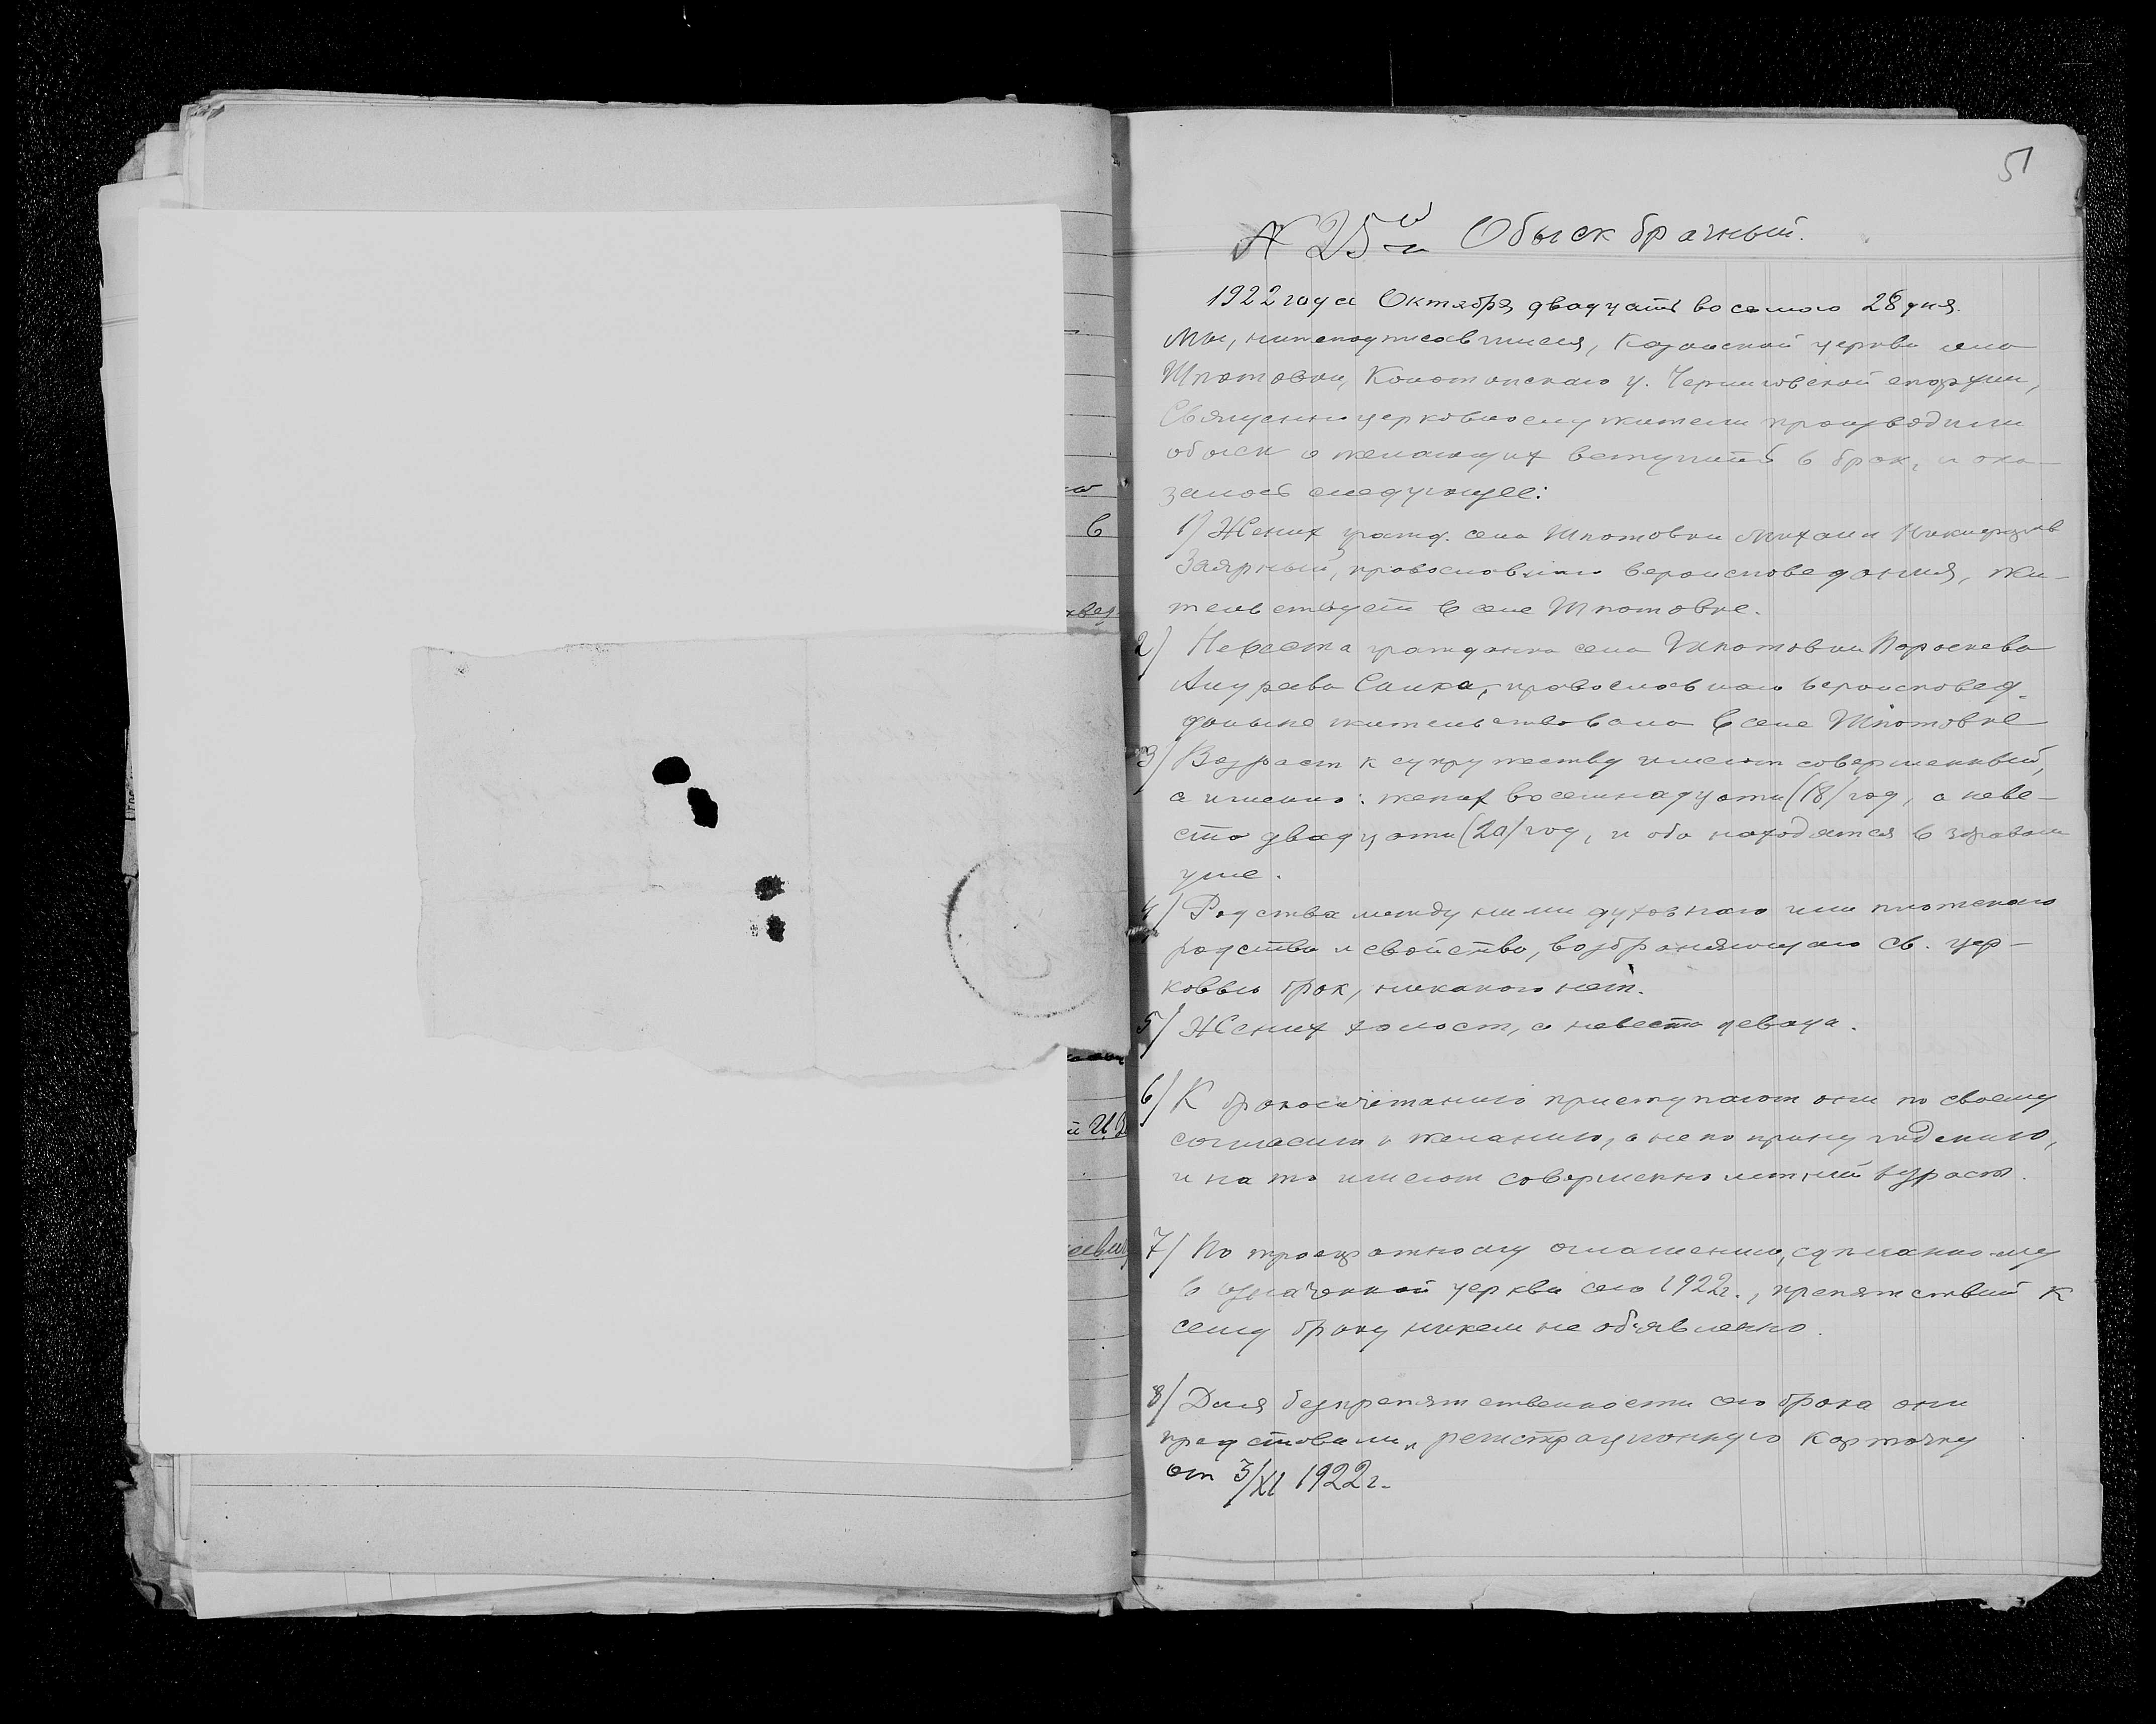 51
№ 25й Обыск брачный.
1922 года Октября двадцать восьмого 28 дня.
Мы, нижеподписавшиеся, Казанской церкви села
Шпотовки, Конотопскаго у. Черниговской епархии,
Священноцерковнослужители производили
обыск о желающих вступить в брак, и ока-
залось следующее:
1) Жених гражд. села Шпотовки Михаил
Заярный, православнаго вероисповедания, жи-
тельствует в селе Шпотовке.
2) Невеста гражданка села Шпотовки Параскева
Андреева Салка, православнаго вероисповед.
доныне жительствовала в селе Шпотовке
3) Возраст к супружеству имеют совершенный,
а именно: жених восемнадцати (18) год, а неве-
ста двадцати (20) год, и оба находятся в здравом
уме.
4) Родства между ними духовнаго или плотскаго
родства и свойства, возбраняющаго св. цер-
ковью брак, никакого нет.
5) Жених холост, а невеста девица.
6) К бракосочетанию приступают они по своему
согласию и желанию, а не по принуждению,
и на то имеют совершеннолетний возраст.
7) По троекратному оглашению, сделанному
в означенной церкви сего 1922г., препятствий к
сему браку никем не объявлено.
8) Для безпрепятственности сего брака они
представили регистрационную карточку
от 3/XI 1922г.
в